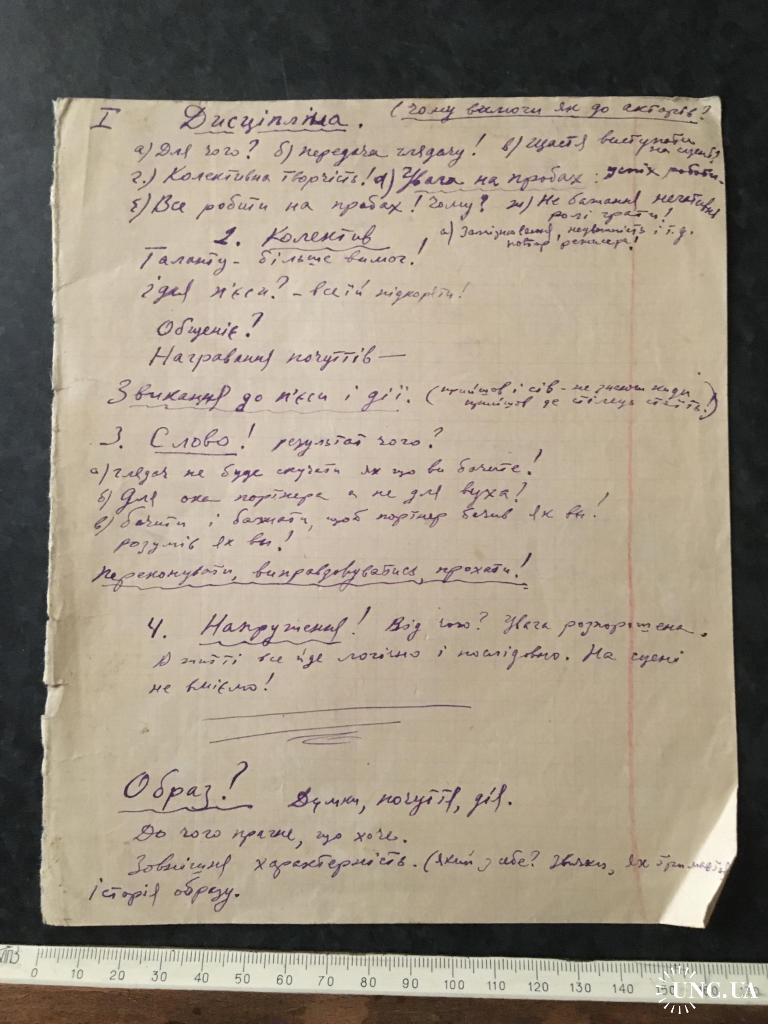 I Дисципліна. (Чому вимоги як до акторів?
а) Для чого? б) передача глядачу! в) Щастя виступати на сцені!
г.) Колективна творчість! д) Увага на пробах: успіх роботи.
е) Все робити на пробах! Чому? ж) Не бажання негативні ролі грати!
2. Колектив
а) Запізнення, і т.д.
Таланту - більше вимог!
Ідея п'єси? - всеїй підкоряти!
Общеніє?
Награвання почуттів —
Звикання до п'єси і дії. (прийшов і сів - не знаючи куди
прийшов де стілець стоїть!)
3. Слово! результат чого?
а) глядач не буде скучати як що ви бачите!
б) Для ока портнера а не для вуха!
в) бачити і бажати, щоб портнер бачив як ви!
розумів як ви!
Переконувати, виправдовуватись, прохати!
4. Напруження! Від чого? Увага розпорошена.
В житті все йде логічно і послідовно. На сцені
не вміємо!
Образ? Думки, почуття, дія.
До чого прагне, що хоче.
Зовнішня характерність. (який з себе? Звички, як тримається
історія образу.
0 10 20 30 40 50 60 70 80 90 100 110 120 130 140 150 160 170
UNC.UA